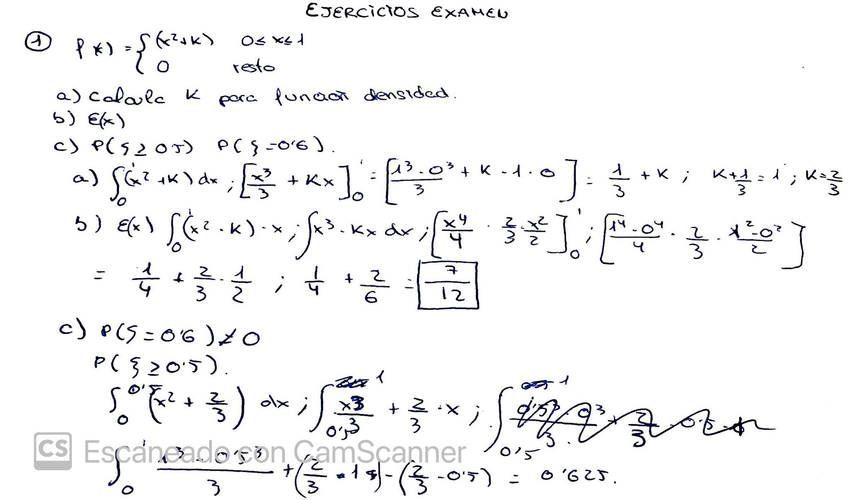 EJERCICIOS EXAMEN
① f(x) = { (x²+k) 0≤x≤1
0 resto
a) Calcula K para función densidad.
b) E(x)
c) P(ξ ≥ 0'5) P(ξ = 0'6).
a) ∫₀¹ (x² + K) dx ; [x³/3 + Kx]₀¹ = [1³ - 0³/3 + K - 1 · 0] = 1/3 + K ; K + 1/3 = 1 ; K = 2/3
b) E(x) ∫₀¹ (x² · K) · x ; ∫ x³ · Kx dx ; [x⁴/4 · 2/3 · x²/2]₀¹ ; [1⁴ - 0⁴/4 · 2/3 · 1² - 0²/2]
= 1/4 + 2/3 · 1/2 ; 1/4 + 2/6 = 7/12
c) P(ξ = 0'6) ≠ 0
P(ξ ≥ 0'5).
∫₀^0'5 (x² + 2/3) dx ; ∫_0'5^1 x³/3 + 2/3 · x ; ∫_0'5^1
CS Escaneado con CamScanner
∫₀¹ 1³ - 0'5³/3 + (2/3 · 1) - (2/3 · 0'5) = 0'625.